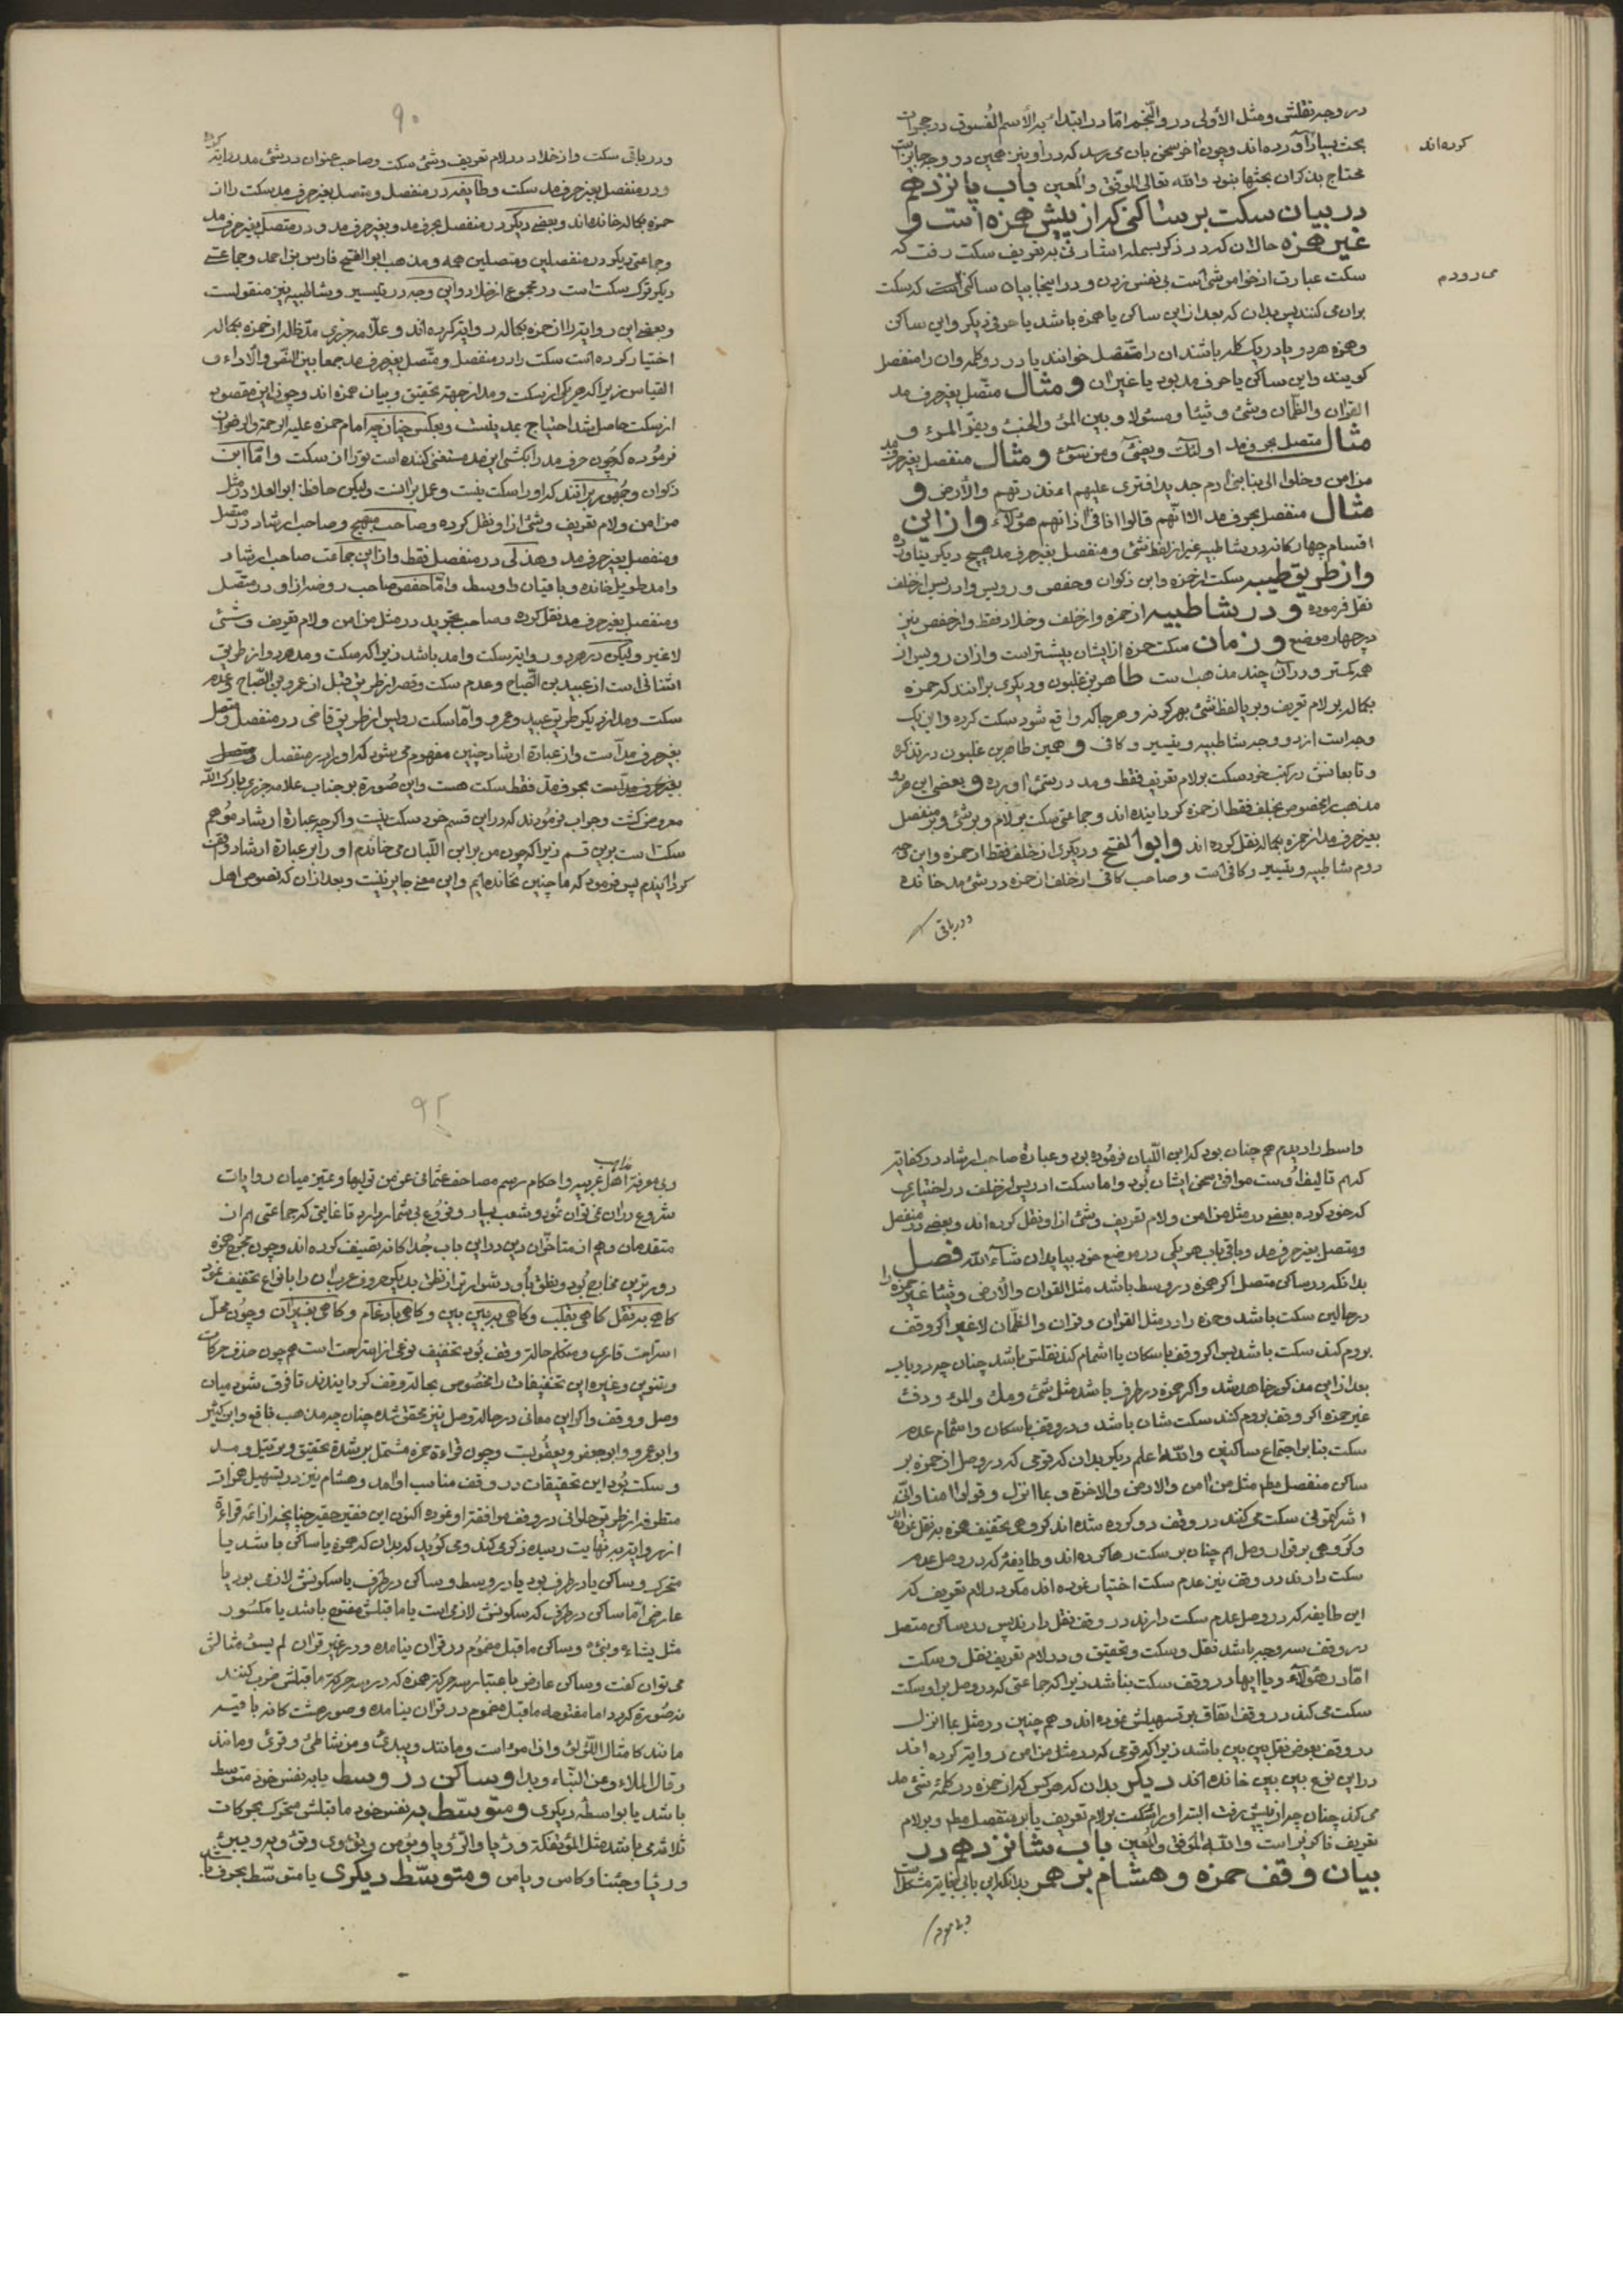 در وجه نقلش و مثل الأولی در والنجم اما در ابتدا به الأسم الفسوق در حجرات
بحث بسیار آورده‌اند و چون آخر سخن بان می‌رسد که در او نیز همین دو وجه جایز است
محتاج بذکر ان بحثها نبود والله تعالی الموفق والمعین باب پانزدهم
در بیان سکت بر ساکنی که از پیش همزه است و
غیر همزه حالا ان که در ذکر بسمله اشارتی به تعریف سکت رفت که
سکت عبارت از خوامشی است بی نفس زدن و در اینجا بیان ساکنی است که سکت
بران می کنند پس بدان که بعد از این ساکن یا همزه باشد یا حرفی دیگر و این ساکن
و همزه هر دو یا در یک کلمه باشند ان را متصل خوانند یا در دو کلمه و ان را منفصل
کویند و این ساکن یا حرف مد بود یا غیر ان و مثال متصل بغیر حرف مد
القرآن والظمآن وشئ وشیئا ومسئولا وبین المرء والخبء ویفر المرء و
مثال متصل بحرف مد اولئک ویضئ ومن سوء و مثال منفصل بغیر حرف مد
من امن وخلوا الی بنا بنی ادم جدید افتری علیهم ءانذرتهم والأرض و
مثال منفصل بحرف مد قالوا انا فی اذانهم هؤلاء و از این
اقسام چهارکانه در شاطبیه غیر از لفظ شئ و منفصل بغیر حرف مد هیچ دیکر نیاورده
و از طریق طیبه سکت از حمزه وابن ذکوان وحفص و رویس وادریس از خلف
نقل فرموده و در شاطبیه از حمزه واز خلف وخلاد فقط واز حفص نیز
در چهار موضع و زمان سکت حمزه از ایشان بیشتر است و از ان رویس از
همه کمتر و در آن چند مذهب است طاهر بن غلبون و دیکری برانند که حمزه
بکماله بر لام تعریف و بر یا لفظ شئ بهر کونه و هر جا که واقع شود سکت کرده و این یک
وجه است از دو وجه شاطبیه وتیسیر وکافی و همین طاهر بن غلبون در تذکره
و تابعانش در کتب خود سکت بر لام تعریف فقط و مد در شئ اورده و بعضی این هر دو
مذهب را مخصوص بخلف فقط از حمزه کردانیده اند و جماعتی سکت بر لام و بر شئ و بر منفصل
بغیر حرف مد از حمزه بکماله نقل کرده اند وابو الفتح و دیکری از خلف فقط از حمزه واین وجه
دوم شاطبیه وتیسیر وکافی است و صاحب کافی از خلف از حمزه در شئ مد خانده
ودر باقی
کرده‌اند
می رودم
۹۰
ودر باقی سکت و از خلاد در لام تعریف و شئ سکت و صاحب عنوان در شئ مد روایة کرده
و در منفصل بغیر حرف مد سکت و طایفه در منفصل و متصل بغیر حرف مد سکت را از
حمزه بکماله خانده‌اند و بعضی دیکر در منفصل بحرف مد و بغیر حرف مد و در متصل بغیر حرف مد
و جماعتی دیکر در منفصلین و متصلین همه و مذهب ابو الفتح فارس بن احمد و جماعتی
دیکر ترک سکت است در مجموع از خلاد و این وجه در تیسیر و شاطبیه نیز منقولست
و بعضی این روایة را از حمزه بکماله روایة کرده اند و علامه جزری مد ظله از حمزه بکماله
اختیار کرده است سکت را در منفصل و متصل بغیر حرف مد جمعا بین النص والأداء و
القیاس زیرا که هر یک از سکت و مد از جهة تحقیق و بیان همزه اند و چون این مقصود
از سکت حاصل شد احتیاج بمد نیست وبعکس چنان چه امام حمزه علیه الرحمة والرضوان
فرموده که چون حرف مد را بکشی این مد مستغنی کننده است تو را از سکت و اما ابن
ذکوان و جمهور برانند که او را سکت نیست و عمل بر انست و لیکن حافظ ابو العلا در مثل
من امن ولام تعریف وشئ از او نقل کرده و صاحب مبهج و صاحب ارشاد در متصل
ومنفصل بغیر حرف مد وهذلی در منفصل فقط و از این جماعت صاحب ارشاد
را مد طویل خانده و باقیان را وسط و اما حفص صاحب روضه از او در متصل
ومنفصل بغیر حرف مد نقل کرده و صاحب تجرید در مثل من امن ولام تعریف وشئ
لا غیر و لیکن در هر دو روایة سکت وامد باشد زیرا که سکت و مد هر دو از طریق
اشنانی است از عبید بن الصباح و عدم سکت وقصر از طریق فیل از عمرو بن الصباح و عدم
سکت ومد از دیکر طریق عبید و عمرو و اما سکت رویس از طریق قاضی در منفصل و متصل
بغیر حرف مد است و از عبارة ارشاد چنین مفهوم می شود که او را در منفصل و متصل
بغیر حرف مد است بحرف مد فقط سکت هست و این صورة بر جناب علامه جزری بارک الله
معروض کشت و جواب فرمودند که در این قسم خود سکت نیست و اکرچه عبارة ارشاد موهم
سکت است برین قسم زیرا که چون من بر ابن اللبان می خاندم او را بر عبارة ارشاد وقف
کردانیدم پس فرمود که ما چنین نخانده ایم و این معنی جایز نیست و بعد از ان که نصوص اهل
واسط را دیدم هم چنان بود که ابن اللبان فرموده بود و عبارة صاحب ارشاد در کفایة
که هم تالیف اوست موافق سخن ایشان بود و اما سکت ادریس از خلف در اختیاری
که خود کرده بعضی در مثل من امن ولام تعریف وشئ از او نقل کرده اند و بعضی در منفصل
ومتصل بغیر حرف مد و باقی باب هر یکی در موضع خود بیابد ان شاء الله فصل
بدانکه در ساکن متصل اکر همزه در وسط باشد مثل القرآن والأرض وشیئا غیر حمزه را
در حالین سکت باشد وحمزه را در مثل القرآن وقرآن والظمآن لا غیر اکر وقف
بروم کند سکت باشد پس اکر وقف باسکان یا اشمام کند نقلش باشد چنان چه در باب
بعد از این مذکور خاهد شد و اکر همزه در طرف باشد مثل شئ وملء والمرء ودفء
غیر حمزه اکر وقف بروم کند سکت شان باشد و در وقف باسکان و اشمام عدم
سکت بنا بر اجتماع ساکنین والله اعلم دیکر بدان که قومی که در وصل از حمزه بر
ساکن منفصل مطم مثل من امن والارض والاخرة وبما انزل وقولوا امنا وانی
اشرکتمونی سکت می کنند در وقف دو کروه شده اند کروهی تخفیف همزه بنقل نموده اند
وکروهی بر قرار وصل هم چنان بر سکت رها کرده اند و طایفه که در وصل عدم
سکت دارند در وقف نیز عدم سکت اختیار نموده اند مکر در لام تعریف که
این طایفه که در وصل عدم سکت دارند در وقف نقل دارند پس در ساکن متصل
در وقف سه وجه باشد نقل و سکت وتحقیق و در لام تعریف نقل و سکت
اما در هؤلاء ویا ایها در وقف سکت بنا شد زیرا که جماعتی که در وصل بر او سکت
سکت می کنند در وقف اتفاق بر تسهیلش نموده اند و هم چنین در مثل بما انزل
در وقف بعوض نقل بین بین باشد زیرا که قومی که در مثل من امن روایة کرده اند
در این نوع بین بین خانده اند دیکر بدان که هر کس که از حمزه در کلمه شئ مد
می کند چنان چه از پیش رفت البته او را سکت بر لام تعریف یا بر منفصل مطم و بر لام
تعریف ناکزیر است والله الموفق والمعین باب شانزدهم در
بیان وقف حمزه و هشام بر همز بدانکه این باب بغایة مشکل است
۹۲
و بی معرفة مذاهب اهل عربیه و احکام رسم مصاحف عثمانی عوض تولیها و تمیز میان روایات
شروع دران نمی توان نمود و شعب بسیار و فروع بی شمار دارد تا غایتی که جماعتی هم از
متقدمان و هم از متاخران دین در این باب جداکانه تصنیف کرده اند و چون مخرج همزه
دورترین مخارج بود و نطق باو دشوارتر از نطق بدیکر حروف عربان را بانواع تخفیف نمود
کاهی به نقل کاهی بقلب وکاهی به بین بین و کاهی بادغام و کاهی بغیر ان و چون محل
استراحت قاری و متکلم حالة وقف بود تخفیف نوعی از استراحت است هم چون حذف حرکات
وتنوین وغیره این تخفیفات را مخصوص بحالة وقف کردانیدند تا فرق شود میان
وصل و وقف واکر این معانی در حالة وصل نیز محقق شده چنان چه مذهب نافع وابن کثیر
وابو عمرو وابو جعفر و یعقوبست و چون قراءة حمزه مشتمل بر شدة تحقیق و ترتیل و مد
و سکت بود این تخفیفات در وقف مناسب او امد و هشام نیز در تسهیل همزات
متطرفه از طریق حلوانی در وقف موافقة او نموده اکنون این فقیر حقیر چنانچه از ائمه قراءة
از هر روایة به نهایت رسیده ذکر می کند و می کوید که بدان که همزه یا ساکن باشد یا
متحرک وساکن یا در طرف بود یا در وسط وساکن در طرف یا سکونش لازمی بود یا
عارضی اما ساکن در طرف که سکونش لازمی است یا ما قبلش مفتوح باشد یا مکسور
مثل یشاء ونبئ وساکن ما قبل مضموم در قران بنا مده و در غیر قران لم یسؤ مثالش
می توان کفت و ساکن عارض باعتبار سه حرکة همزه که در سه حرکة ما قبلش ضرب کنند
نه صورة کردد اما مفتوحه ما قبل مضموم در قران بنامده و صور هشت کانه باقیه
مانند کامثال اللؤلؤ وان امرؤ است ومانند ویبدئ ومن شاطئ وقرئ ومانند
وقال الملاء ومن النباء وبدا وساکن در وسط یا به نفس خود متوسط
باشد یا بواسطه دیکری و متوسط به نفس خود ما قبلش متحرک بحرکات
ثلاثه می باشد مثل المؤتفکة ورؤیا والرؤیا ویؤمن وتؤوی وبئر وبئس
ورئیا وجئنا وکاس ویاس و متوسط دیکری یا متوسط بحرف باشد